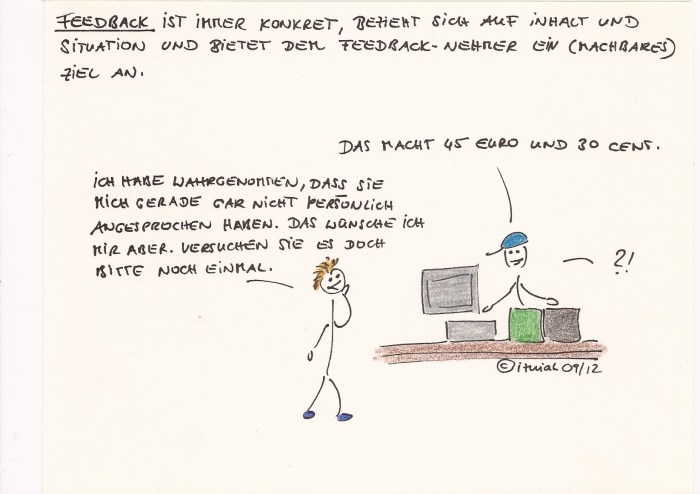 FEEDBACK IST IMMER KONKRET, BEZIEHT SICH AUF INHALT UND
SITUATION UND BIETET DEM FEEDBACK-NEHMER EIN (MACHBARES)
ZIEL AN.
DAS MACHT 45 EURO UND 30 CENT.
ICH HABE WAHRGENOMMEN, DASS SIE
MICH GERADE GAR NICHT PERSÖNLICH
ANGESPROCHEN HABEN. DAS WÜNSCHE ICH
MIR ABER. VERSUCHEN SIE ES DOCH
BITTE NOCH EINMAL.
?!
© 09/12